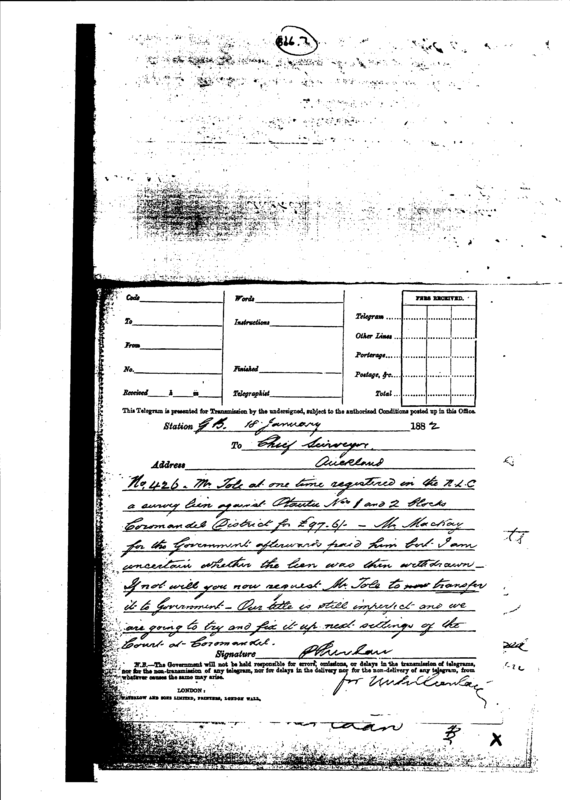 Code
Words
FEES RECEIVED.
To
Instructions
Telegram
Other Lines
From
Porterage
No.
Finished
Postage, &c.
Received h m
Telegraphist
Total
This Telegram is presented for Transmission by the undersigned, subject to the authorized Conditions posted up in this Office.
Station G.B. 18 January 1882
To Chief Surveyor
Address Auckland
No 426. Mr Tole at one time registered in the N.L.C
a survey lien against Nos 1 and 2 Blocks
Coromandel District for £97.6/- Mr Mackay
for the Government afterwards paid him but I am
uncertain whether the lien was then withdrawn -
If not will you now request Mr Tole to transfer
it to Government - Our title is still imperfect and we
are going to try and fix it up next sittings of the
Court at Coromandel.
Signature
N.B.—The Government will not be held responsible for errors, omissions, or delays in the transmission of telegrams,
nor for the non-transmission of any telegram, nor for delays in the delivery nor for the non-delivery of any telegram, from
whatever causes the same may arise.
for
LONDON:
WATERLOW AND SONS LIMITED, PRINTERS, LONDON WALL.
X